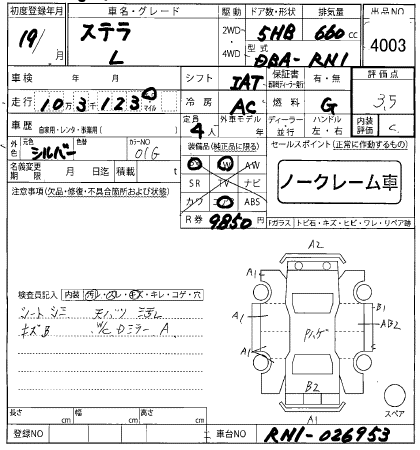 初度登録年月 車名・グレード 駆動 ドア数・形状 排気量 出品NO
19/ 月 ステラ L 2WD・4WD 5HB 660 cc
型式 DBA-RN1 4003
車検 年 月 シフト IAT 保証書 有・無 評価点
走行 10万3千123 マイル 冷房 AC 燃料 G 3.5
車歴 自家用・レンタ・事業用( ) 定員 4人 外車モデル 年 ディーラー 並行 ハンドル 左・右 内装評価 C
外色 元色 シルバー 色替 カラーNO 01G 装備品(純正品に限る) セールスポイント(正常に作動するもの)
名義変更期限 月 日迄 積載 t SR TV ナビ ノークレーム車
注意事項(欠品・修復・不具合箇所および状態) カワ ABS
R券 9850円 Fガラス トビ石・キズ・ヒビ・ワレ・リペア跡
A2
A1
B1
検査員記入 内装 汚レ・スレ・キズ・キレ・コゲ・穴
シートシミ 天バリ ヨゴレ
キズB W/C Dミラー A
Pハゲ
AB2
A1
A1
C
B2
A1
スペア
長さ cm 幅 cm 高さ cm
登録NO 車台NO RN1-026953